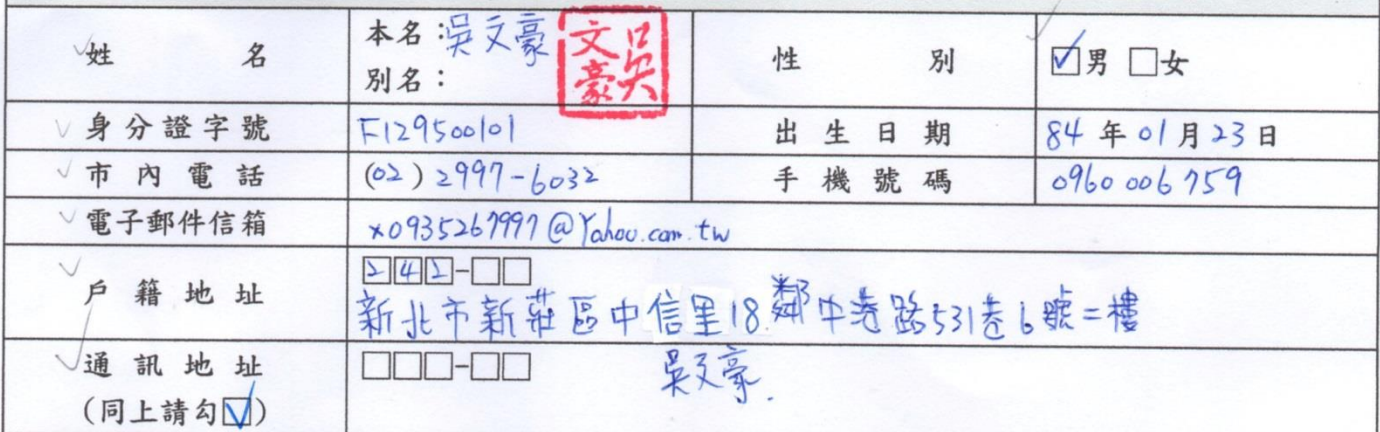 姓名 本名：吳文豪 文豪吳 性別 ☑男 □女
別名：
身分證字號 F129500101 出生日期 84年01月23日
市內電話 (02) 2997-6032 手機號碼 0960 006 759
電子郵件信箱 x0935267997@Yahoo.com.tw
242-□□
戶籍地址
新北市新莊區中信里18鄰中港路531巷6號二樓
通訊地址 □□□-□□ 吳文豪.
(同上請勾☑)